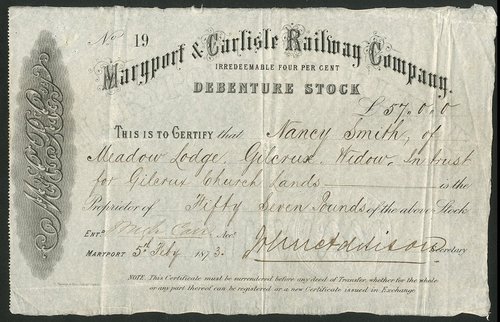 No 19
Maryport & Carlisle Railway Company.
IRREDEEMABLE FOUR PER CENT
DEBENTURE STOCK
£57,0,0
THIS IS TO CERTIFY that Nancy Smith, of
Meadow Lodge, Gilcrux, Widow, In trust
for Gilcrux Church Lands is the
Proprietor of Fifty Seven Pounds of the above Stock
ENTD Hugh Carr Acct
MARYPORT 5th Feby 1873. John Addison Secretary
NOTE. This Certificate must be surrendered before any deed of Transfer, whether for the whole
or any part thereof can be registered or a new Certificate issued in Exchange.